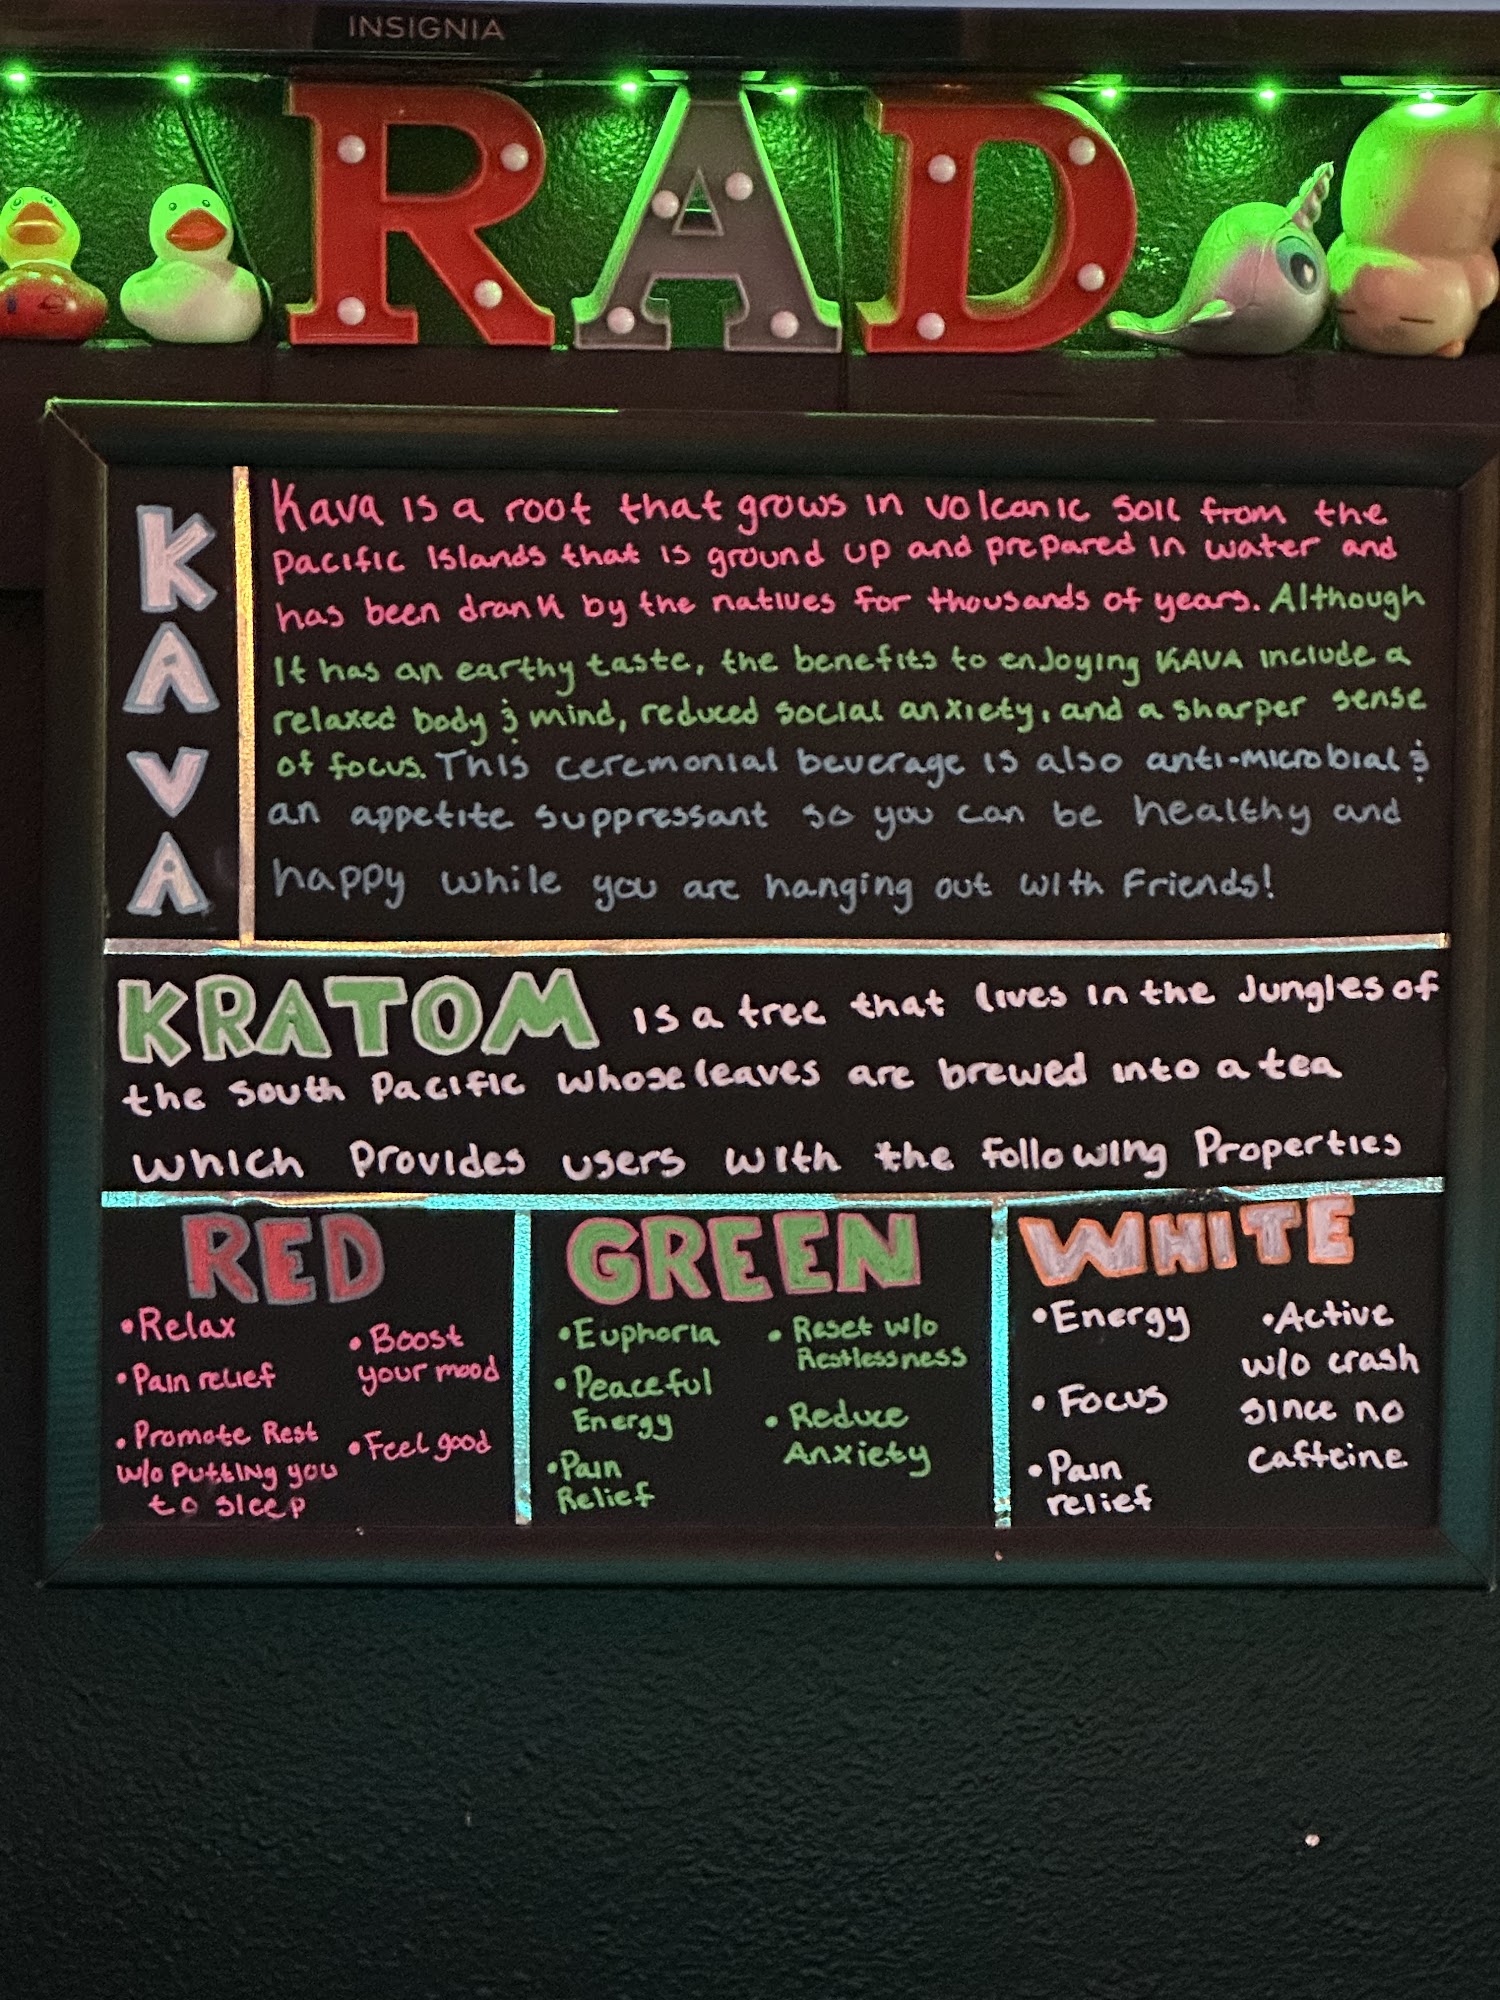 INSIGNIA
RAD
KAVA
Kava is a root that grows in volcanic soil from the
Pacific Islands that is ground up and prepared in water and
has been drank by the natives for thousands of years. Although
It has an earthy taste, the benefits to enjoying KAVA include a
relaxed body & mind, reduced social anxiety, and a sharper sense
of focus. This ceremonial beverage is also anti-microbial &
an appetite suppressant so you can be healthy and
happy while you are hanging out with Friends!
KRATOM is a tree that lives in the Jungles of
the South Pacific whose leaves are brewed into a tea
which Provides users with the following Properties
RED
•Relax
•Pain relief
•Promote Rest
w/o putting you
to sleep
•Boost
your mood
•Feel good
GREEN
•Euphoria
•Peaceful
Energy
•Pain
Relief
•Reset w/o
Restlessness
•Reduce
Anxiety
WHITE
•Energy
•Focus
•Pain
relief
•Active
w/o crash
since no
caffeine